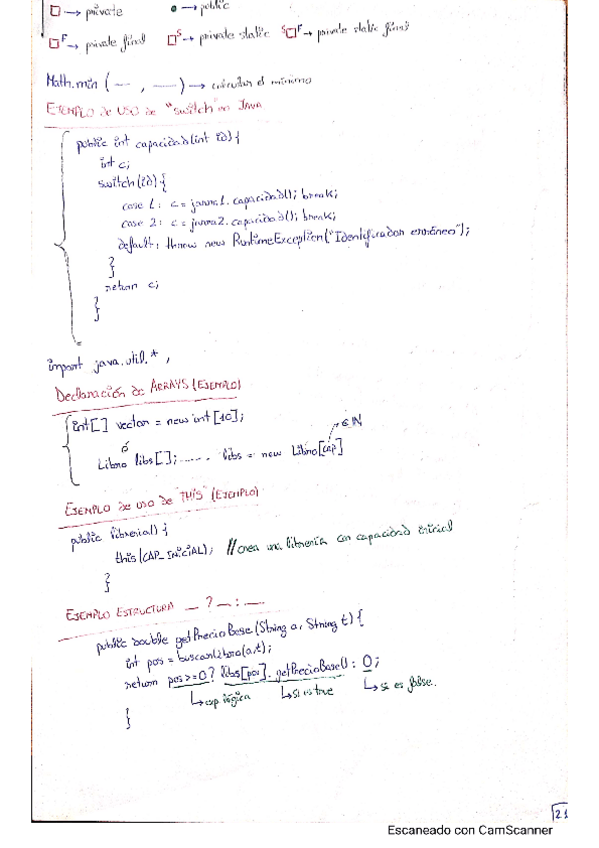 □ → private ● → public
□F → private final □S → private static S□F → private static final
Math.min ( — , — ) → calcular el mínimo
EJEMPLO de USO de "switch" en JAVA
public int capacidad(int id){
int c;
switch(id){
case 1: c = jarra1.capacidad(); break;
case 2: c = jarra2.capacidad(); break;
default: throw new RuntimeException("Identificador erróneo");
}
return c;
}
import java.util.* ,
Declaración de ARRAYS (EJEMPLO)
int[] vector = new int[10];
ó
Libro libs[]; ...... libs = new Libro[cap] → ∈ ℕ
EJEMPLO de uso de "THIS" (EJEMPLO)
public libreria() {
this(CAP_INICIAL); // crea una librería con capacidad inicial
}
EJEMPLO ESTRUCTURA — ? — : —
public double getPrecioBase(String a, String t) {
int pos = buscarLibro(a,t);
return pos>=0 ? libs[pos].getPrecioBase() : 0;
↳ exp lógica ↳ si es true ↳ si es false.
}
21
Escaneado con CamScanner